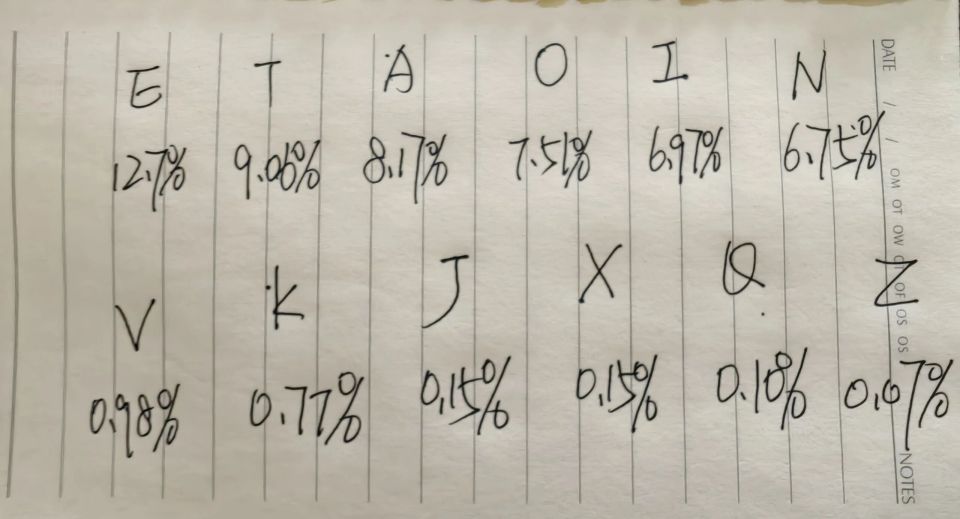 E T A O I N
12.7% 9.06% 8.17% 7.51% 6.97% 6.75%
V K J X Q Z
0.98% 0.77% 0.15% 0.15% 0.10% 0.07%
DATE / /
NOTES